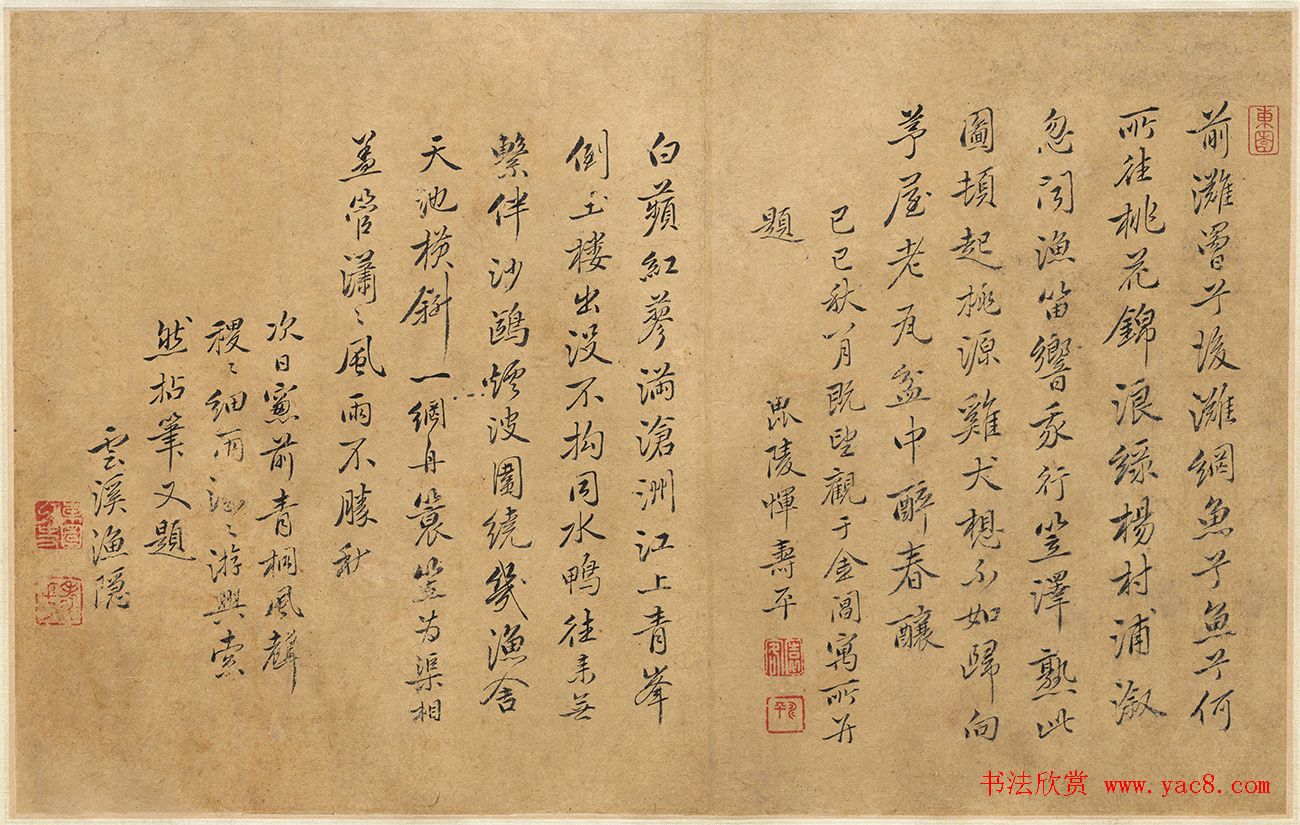 東園
前灘罾兮後灘網魚兮魚兮何
所往桃花錦浪綠楊村浦漵
忽聞漁笛響我行笠澤熟此
圖頓起桃源雞犬想不如歸向
茅屋老瓦盆中醉春釀
己巳秋八月既望觀于金閶寓所并
題
毘陵惲壽平
白蘋紅蓼滿滄洲江上青峯
倒玉樓出沒不拘同水鴨往來無
繫伴沙鷗煙波圍繞幾漁舍
天池橫斜一網舟簑笠為渠相
蓋管瀟〻風雨不勝秋
次日窻前青桐風聲
稷〻細雨沙〻游興索
然拈筆又題
雲溪漁隱
书法欣赏 www.yac8.com